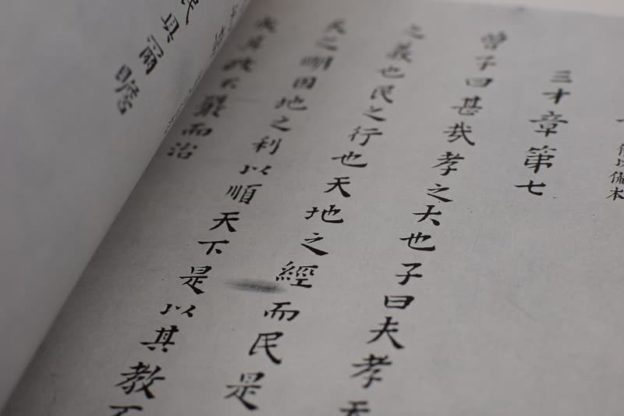 三才章第七
曾子曰甚哉孝之大也子曰夫孝天
之義也民之行也天地之經而民是
天之明因地之利以順天下是以其教不
其政不嚴而治
民具爾瞻